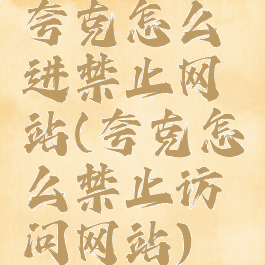 夸克怎么
进禁止网
站(夸克怎
么禁止访
问网站)